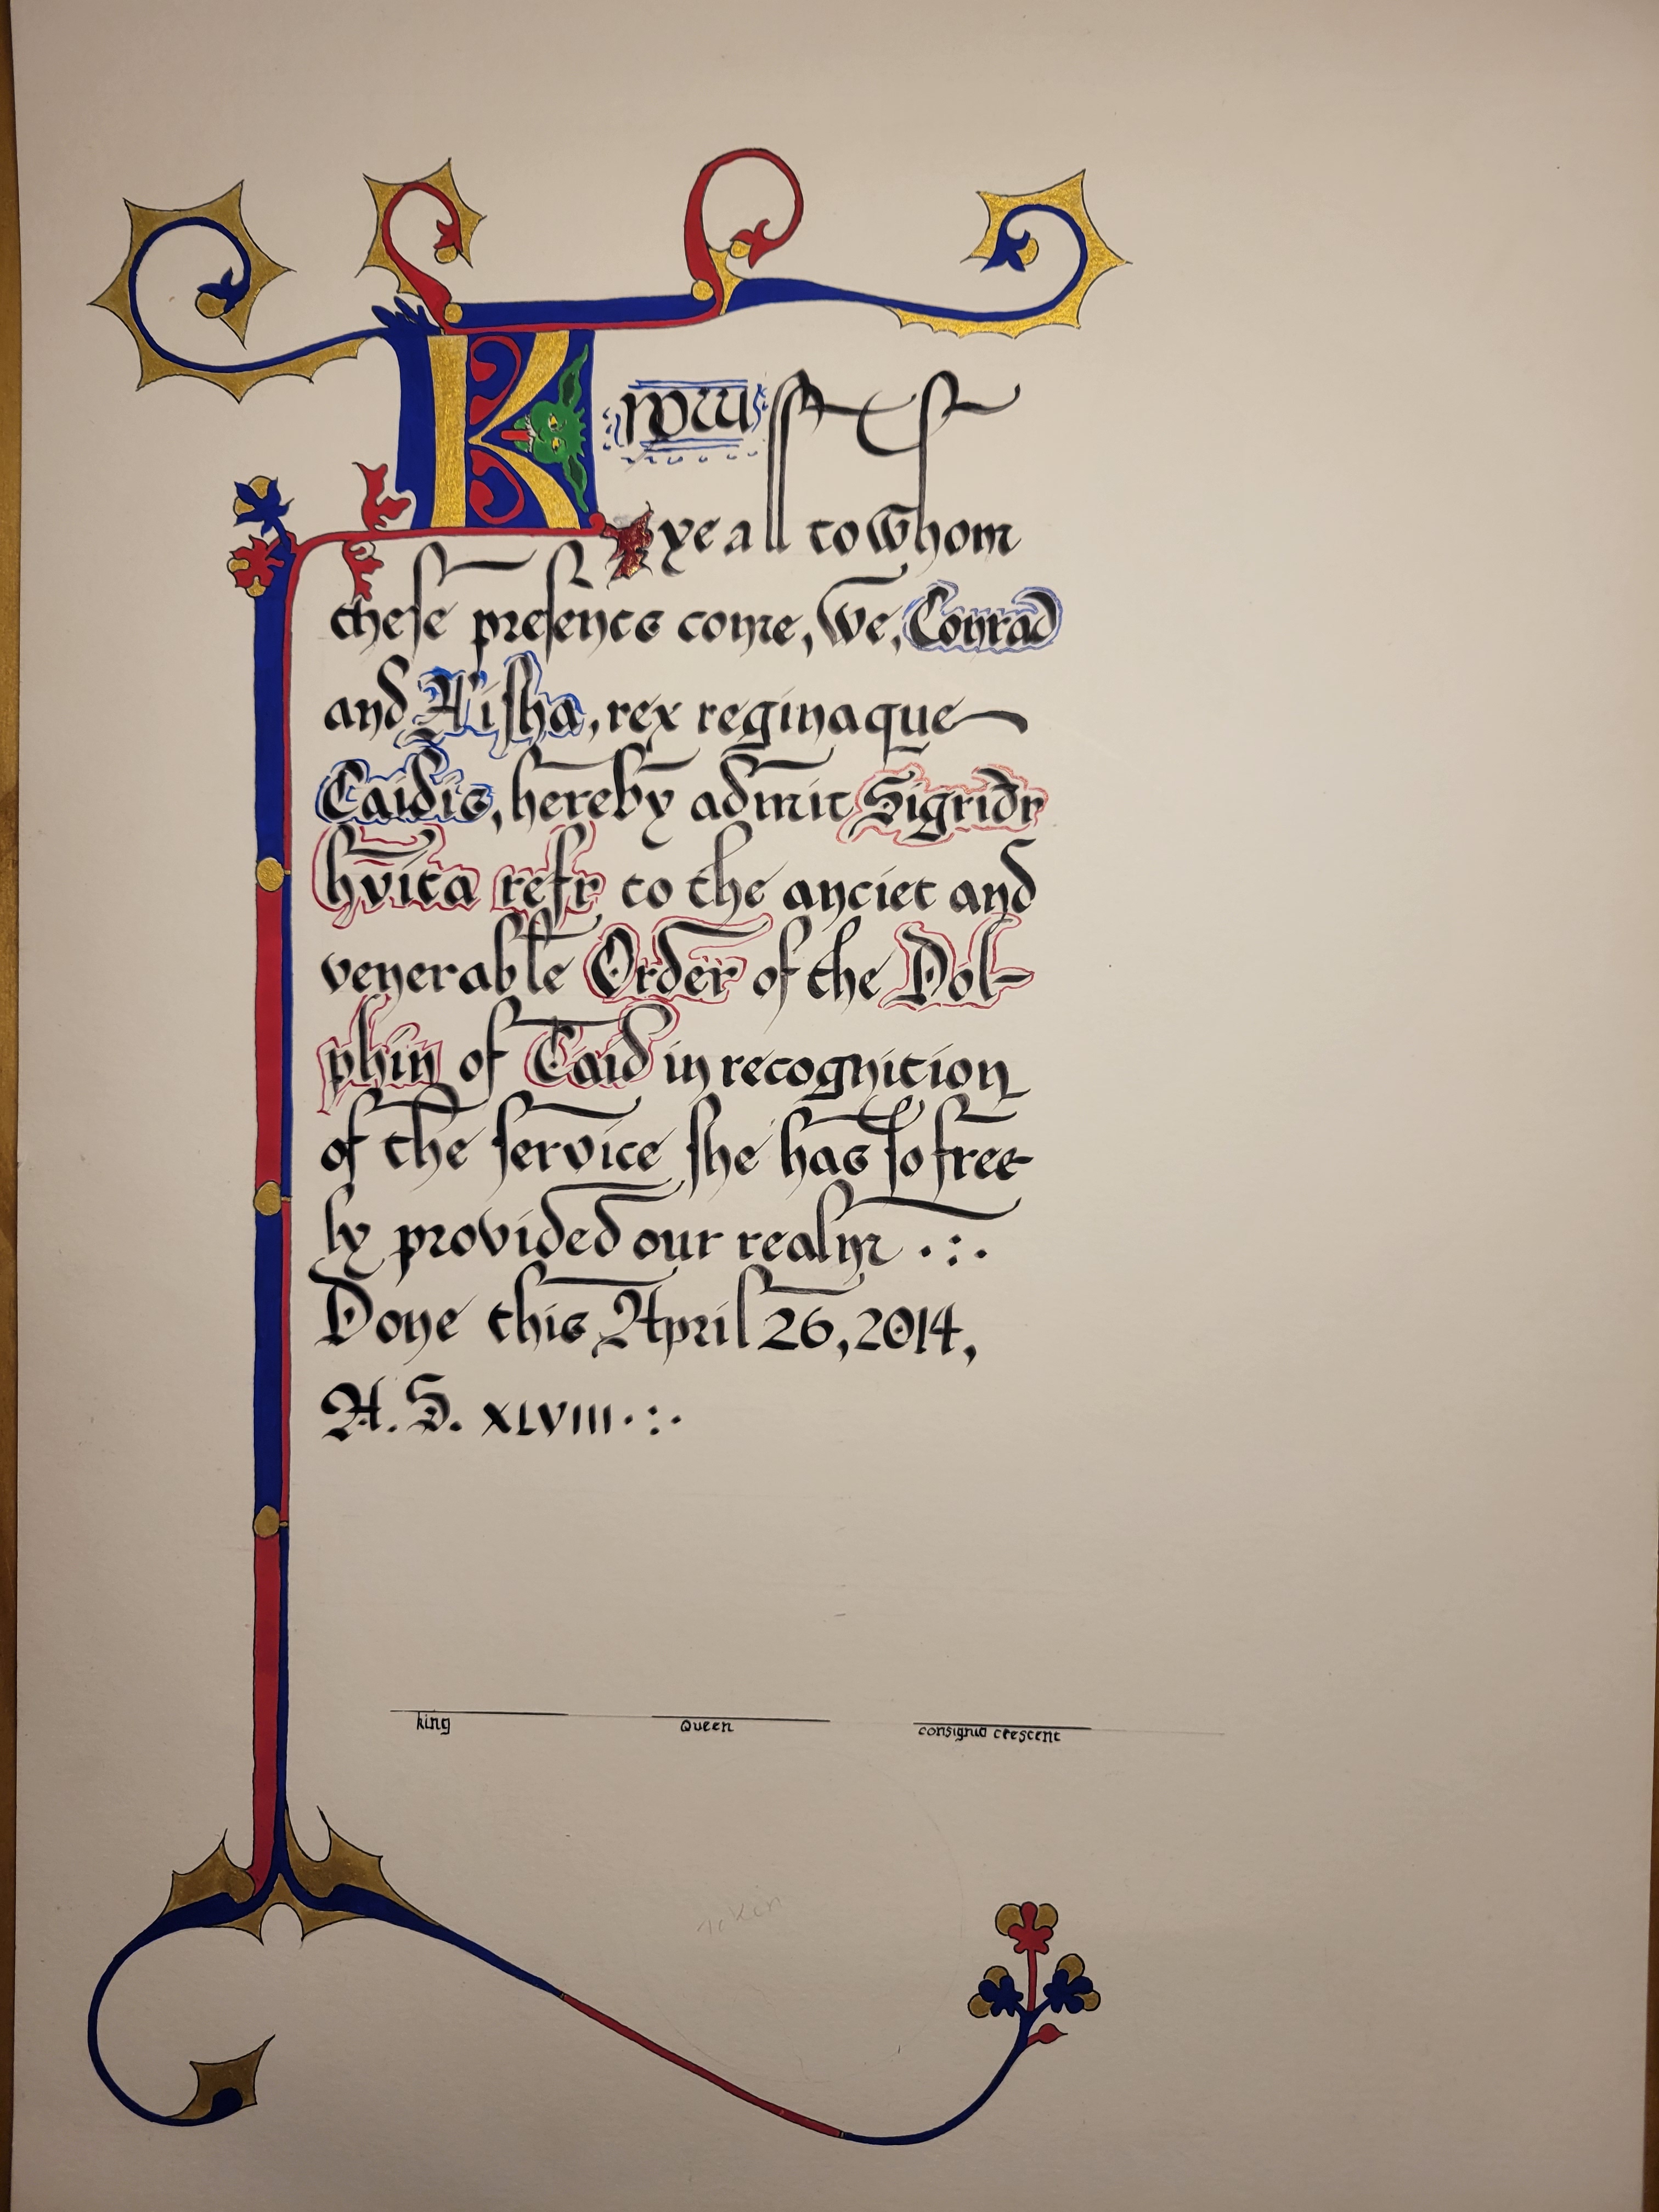 Know
ye all to whom
these presents come, We, Conrad
and Aisha, rex reginaque
Caidis, hereby admit Sigridr
hvita refr to the anciet and
venerable Order of the Dol-
phin of Caid in recognition
of the service she has so free-
ly provided our realm .:.
Done this April 26, 2014,
A. S. XLVIII .:.
king Queen consignia crescent
Token